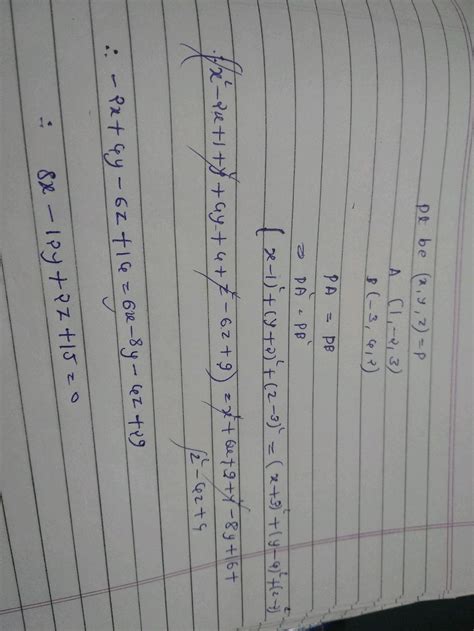 Pt be (x, y, z) = P
A (1, -2, 3)
B (-3, 4, 2)
PA = PB
⇒ PA² = PB²
{ (x-1)² + (y+2)² + (z-3)² = (x+3)² + (y-4)² + (z-2)²
x² - 2x + 1 + y² + 4y + 4 + z² - 6z + 9) = x² + 6x + 9 + y² - 8y + 16 +
z² - 4z + 4
∴ -2x + 4y - 6z + 14 = 6x - 8y - 4z + 29
∴ 8x - 12y + 2z + 15 = 0